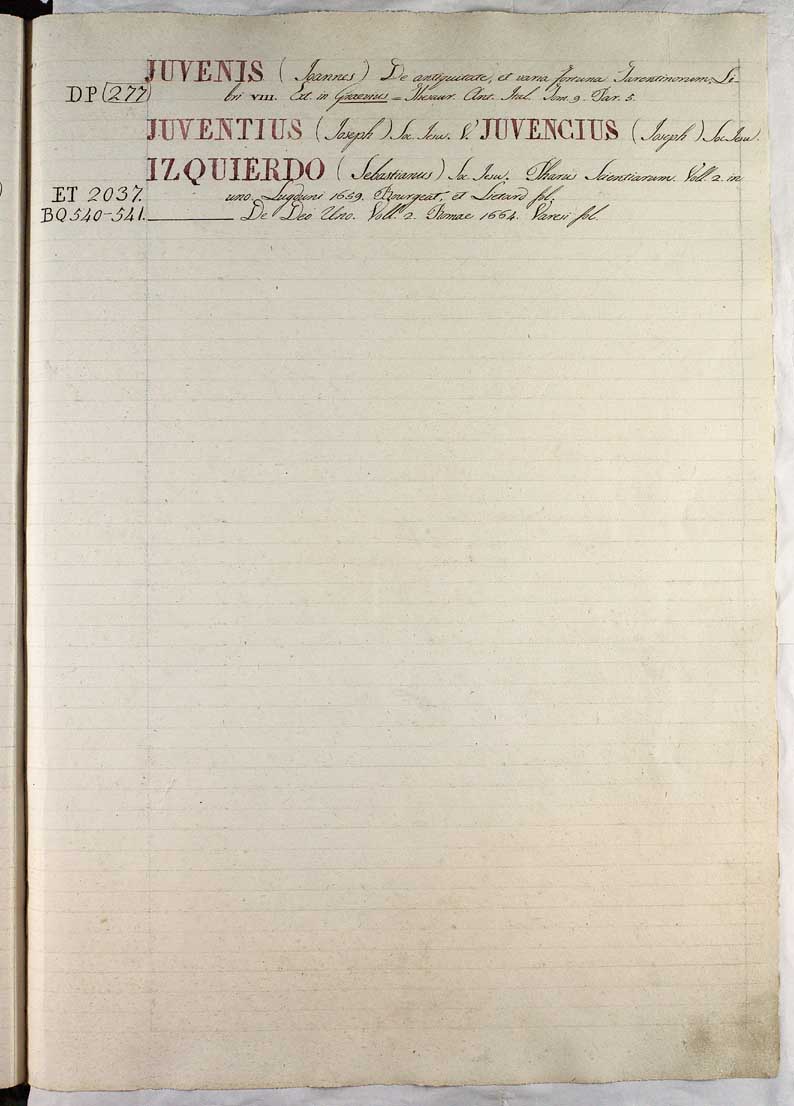 JUVENIS (Joannes) De antiquitate, et varia fortuna Tarentinorum. Li-
DP (277) bri VIII. Ext. in Graevius = Thesaur. Ant. Ital. Tom. 9. Par. 5.
JUVENTIUS (Joseph) Soc. Jesu. V. JUVENCIUS (Joseph) Soc. Jesu.
IZQUIERDO (Sebastianus) Soc. Jesu. Pharus Scientiarum. Voll. 2. in
ET 2037. uno. Lugduni 1659. Bourgeat, et Lietard fol.
BQ 540-541. ——— De Deo Uno. Voll. 2. Romae 1664. Varesi fol.